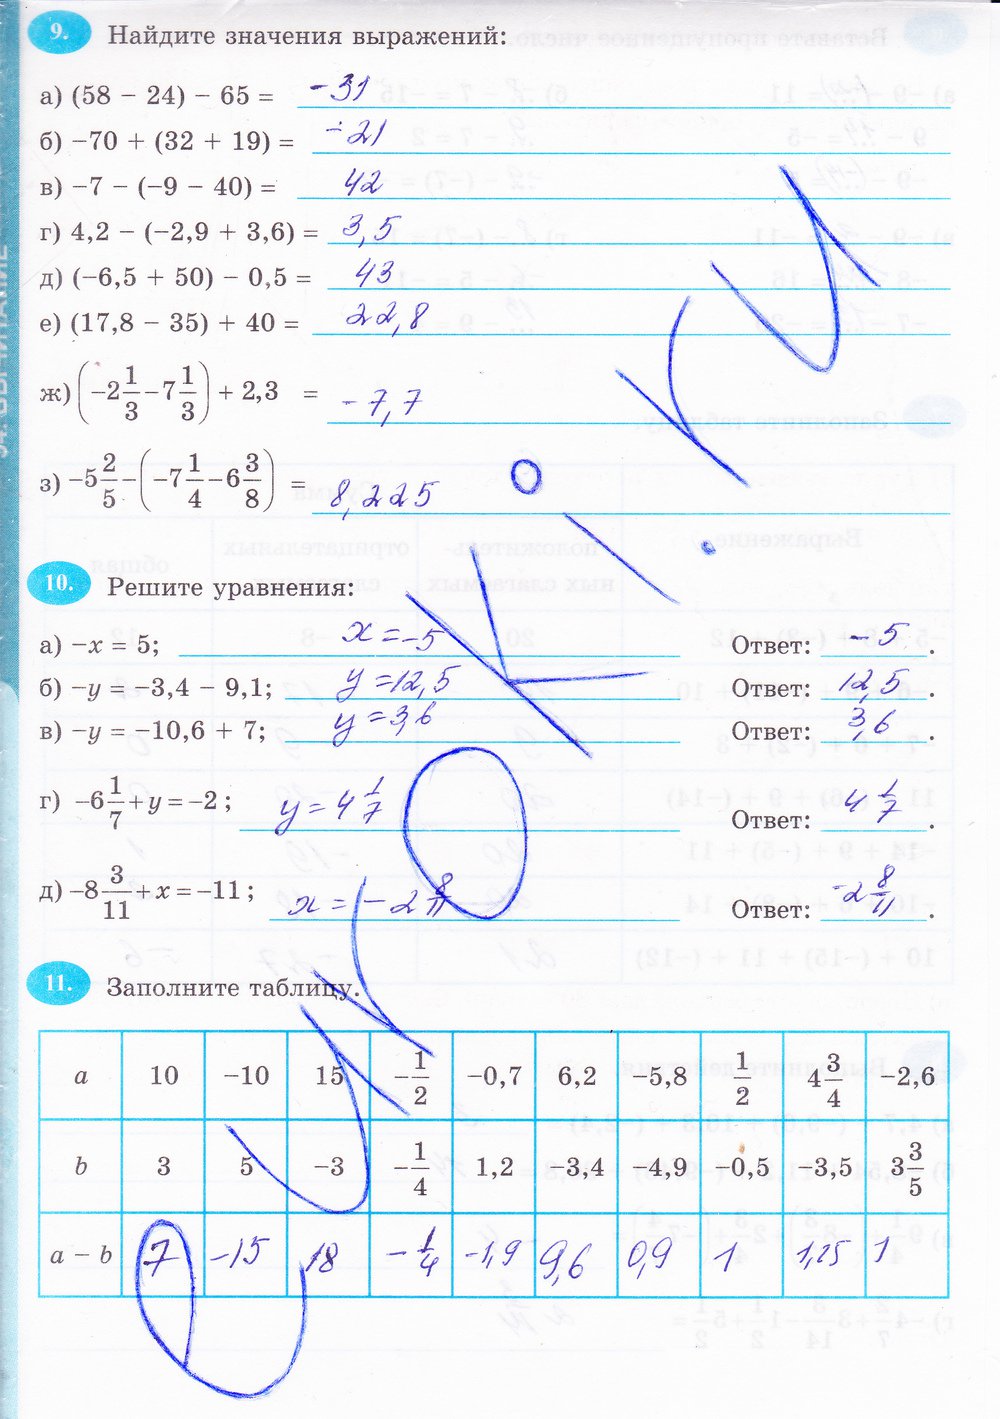 9. Найдите значения выражений:
а) (58 − 24) − 65 = -31
б) −70 + (32 + 19) = -21
в) −7 − (−9 − 40) = 42
г) 4,2 − (−2,9 + 3,6) = 3,5
д) (−6,5 + 50) − 0,5 = 43
е) (17,8 − 35) + 40 = 22,8
ж) (−2 1/3 − 7 1/3) + 2,3 = -7,7
з) −5 2/5 − (−7 1/4 − 6 3/8) = 8,225
10. Решите уравнения:
а) −x = 5; x = -5 Ответ: -5.
б) −y = −3,4 − 9,1; y = 12,5 Ответ: 12,5.
в) −y = −10,6 + 7; y = 3,6 Ответ: 3,6.
г) −6 1/7 + y = −2; y = 4 1/7 Ответ: 4 1/7.
д) −8 3/11 + x = −11; x = -2 8/11 Ответ: -2 8/11.
11. Заполните таблицу.
a 10 −10 15 −1/2 −0,7 6,2 −5,8 1/2 4 3/4 −2,6
b 3 5 −3 −1/4 1,2 −3,4 −4,9 −0,5 −3,5 3 3/5
a − b 7 -15 18 -1/4 -1,9 9,6 0,9 1 1,25 1